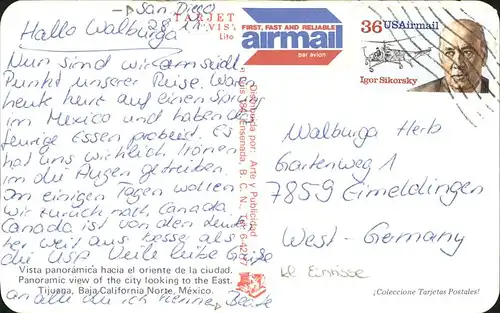 San Diego
28.
Hallo Walburga
Nun sind wir am südl.
Punkt unserer Reise. Waren
heute kurz auf einen Sprung
in Mexico und haben das
feurige Essen probiert. Es
hat uns wirklich Tränen
in die Augen getrieben.
In einigen Tagen wollen
wir zurück nach Canada.
Canada ist von den
her weit aus besser als
die USA Viele liebe Grüße
an alle die ich kenne, Beate
TARJET
Lito
FIRST, FAST AND RELIABLE
airmail
par avion
36 USAirmail
Igor Sikorsky
Distribuida por: Arte y Publicidad
Ensenada, B. C. N., Tel. 6-42
Walburga Herb
Gartenweg 1
7859 Eimeldingen
West-Germany
kl Einrisse
Vista panorámica hacia el oriente de la ciudad.
Panoramic view of the city looking to the East.
Tijuana, Baja California Norte, México.
¡Coleccione Tarjetas Postales!